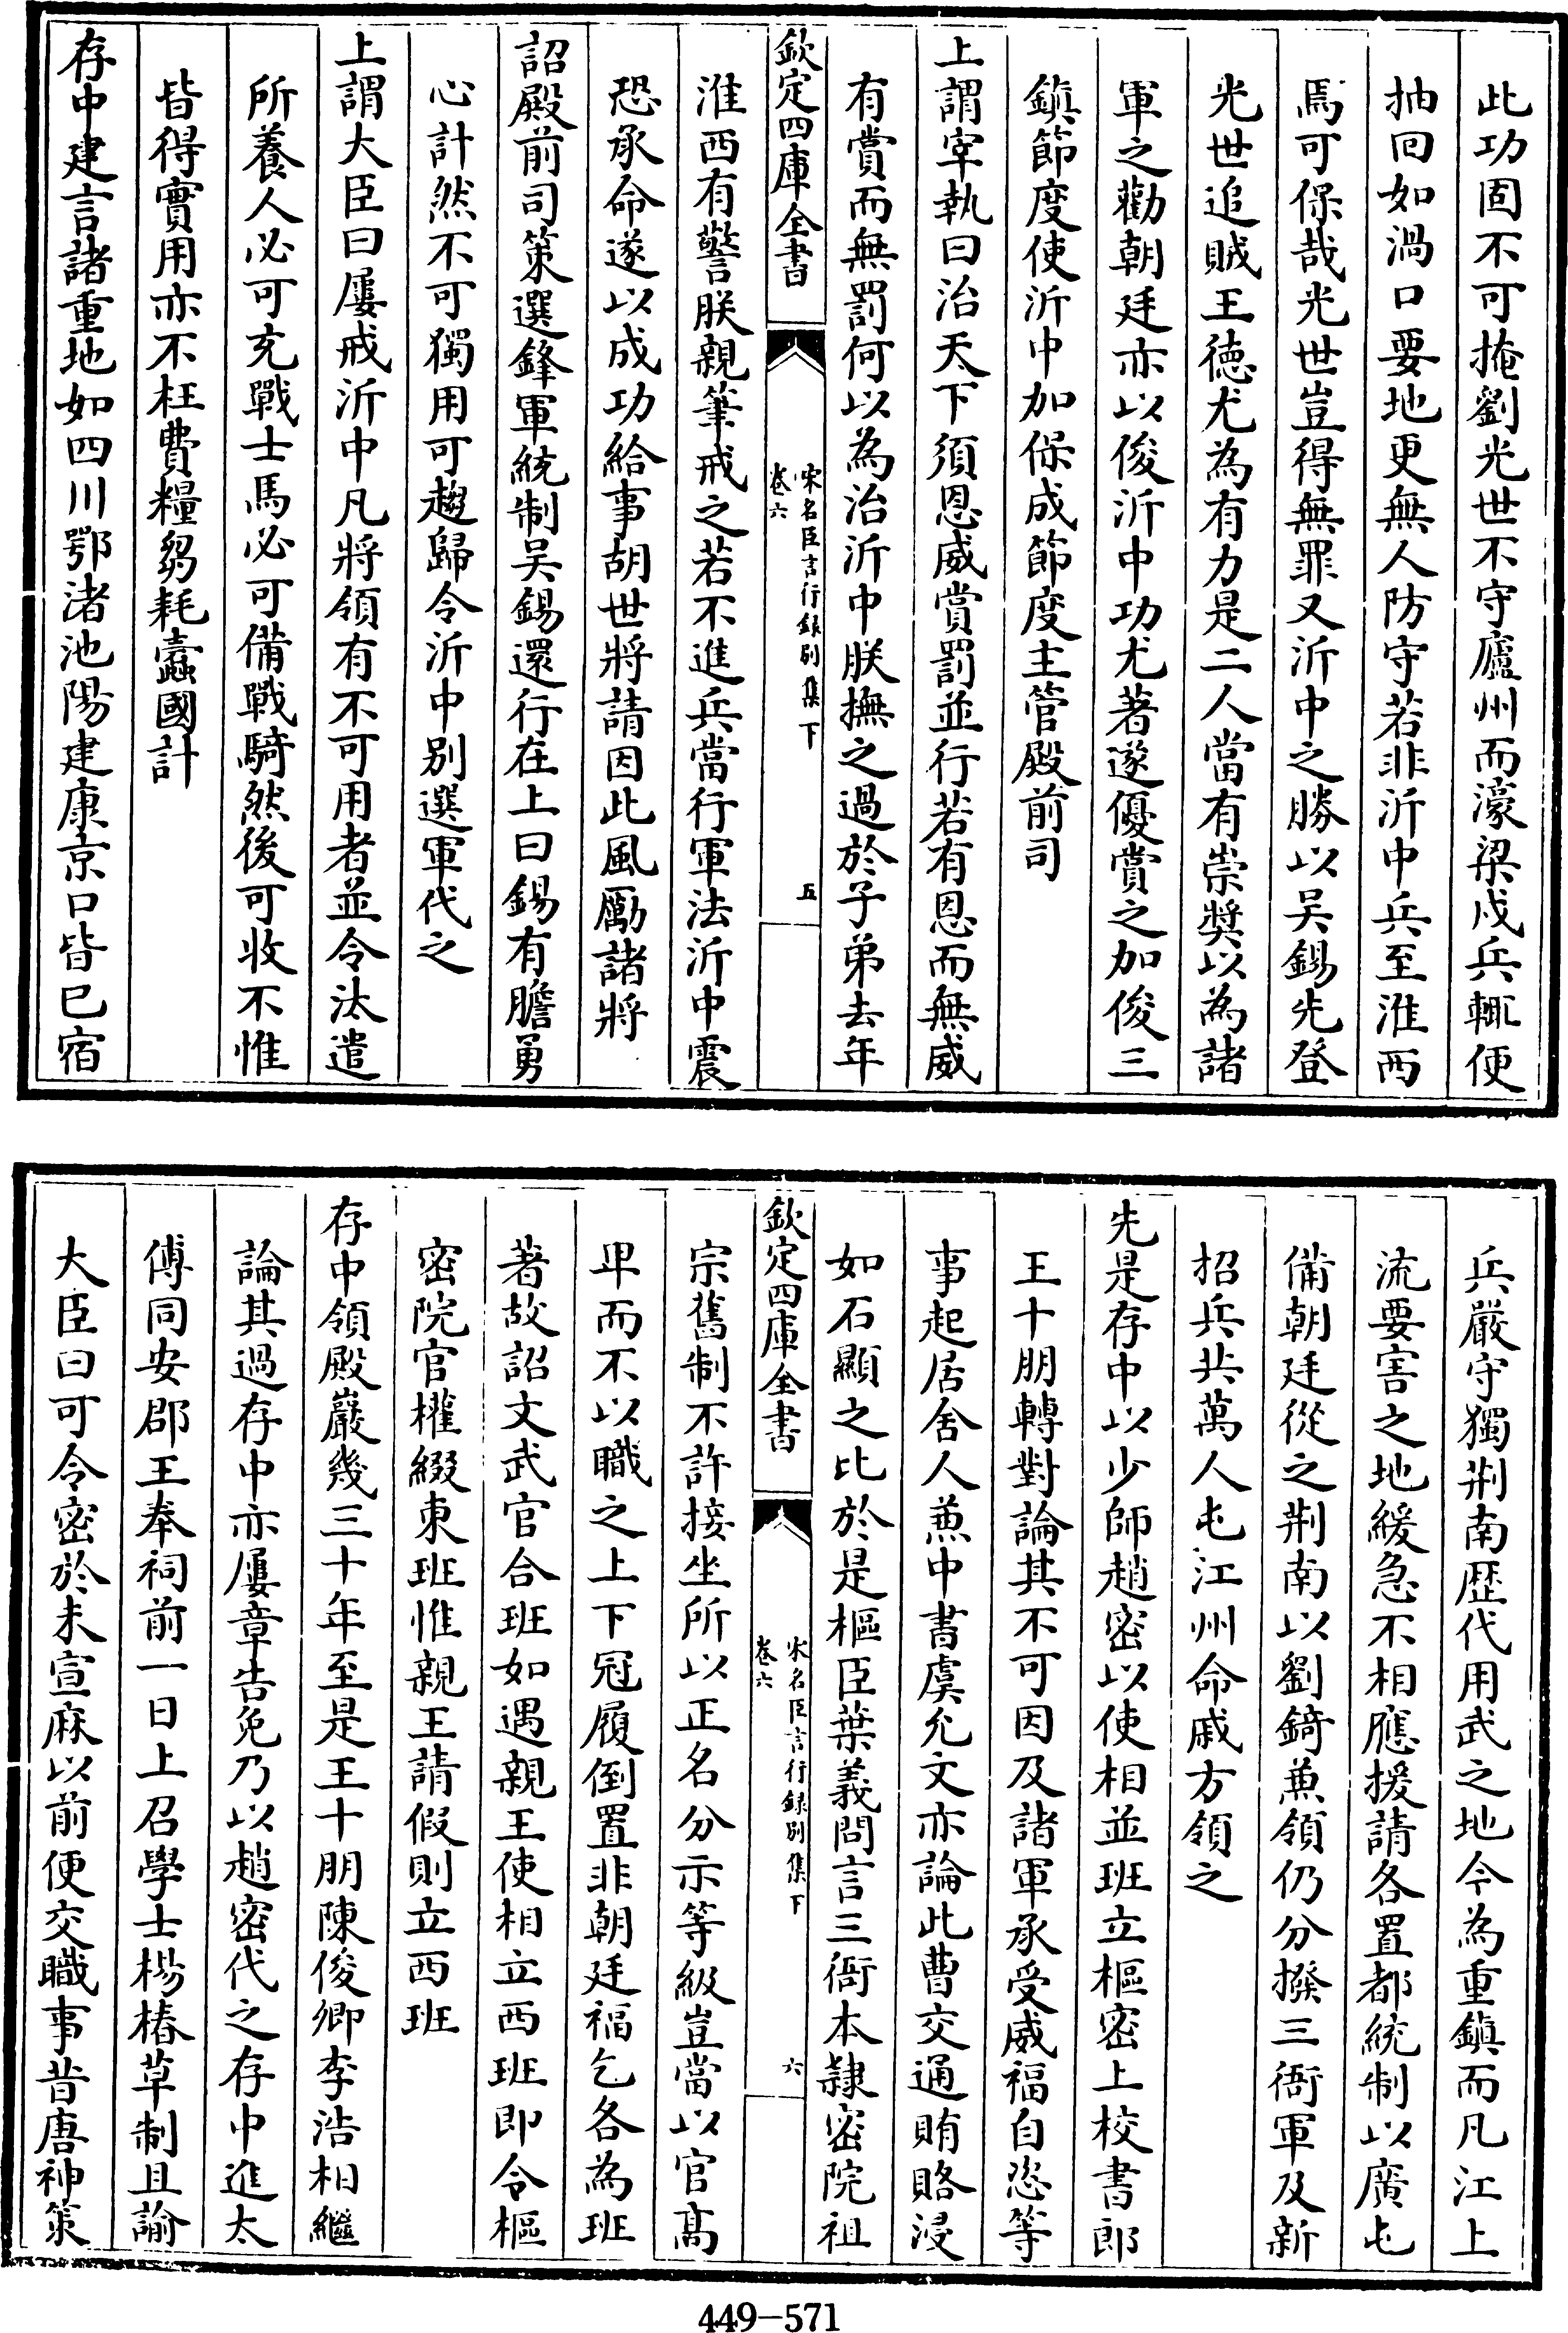 此功固不可掩劉光世不守廬州而濠梁戍兵輒便
抽回如渦口要地更無人防守若非沂中兵至淮西
焉可保哉光世豈得無罪又沂中之勝以吳錫先登
光世追賊王德尤為有力是二人當有崇獎以為諸
軍之勸朝廷亦以俊沂中功尤著遂優賞之加俊三
鎮節度使沂中加保成節度主管殿前司
上謂宰執曰治天下須恩威賞罰並行若有恩而無威
有賞而無罰何以為治沂中朕撫之過於子弟去年
欽定四庫全書
宋名臣言行録别集下
卷六
五
淮西有警朕親筆戒之若不進兵當行軍法沂中震
恐承命遂以成功給事胡世將請因此風厲諸將
詔殿前司策選鋒軍統制吳錫還行在上曰錫有膽勇
心計然不可獨用可趨歸令沂中别選軍代之
上謂大臣曰屢戒沂中凡將領有不可用者並令汰遣
所養人必可充戰士馬必可備戰騎然後可收不惟
皆得實用亦不枉費糧芻耗蠧國計
存中建言諸重地如四川鄂渚池陽建康京口皆已宿
兵嚴守獨荆南歴代用武之地今為重鎮而凡江上
流要害之地緩急不相應援請各置都統制以廣屯
備朝廷從之荆南以劉錡兼領仍分撥三衙軍及新
招兵共萬人屯江州命戚方領之
先是存中以少師趙密以使相並班立樞密上校書郎
王十朋轉對論其不可因及諸軍承受威福自恣等
事起居舍人兼中書虞允文亦論此曹交通賄賂浸
如石顯之比於是樞臣葉義問言三衙本隷密院祖
欽定四庫全書
宋名臣言行録别集下
卷六
六
宗舊制不許接坐所以正名分示等級豈當以官髙
卑而不以職之上下冠履倒置非朝廷福乞各為班
著故詔文武官合班如遇親王使相立西班即令樞
密院官權綴東班惟親王請假則立西班
存中領殿巖幾三十年至是王十朋陳俊卿李浩相繼
論其過存中亦屢章告免乃以趙密代之存中進太
傅同安郡王奉祠前一日上召學士楊椿草制且諭
大臣曰可令密於未宣麻以前便交職事昔唐神策
449-571